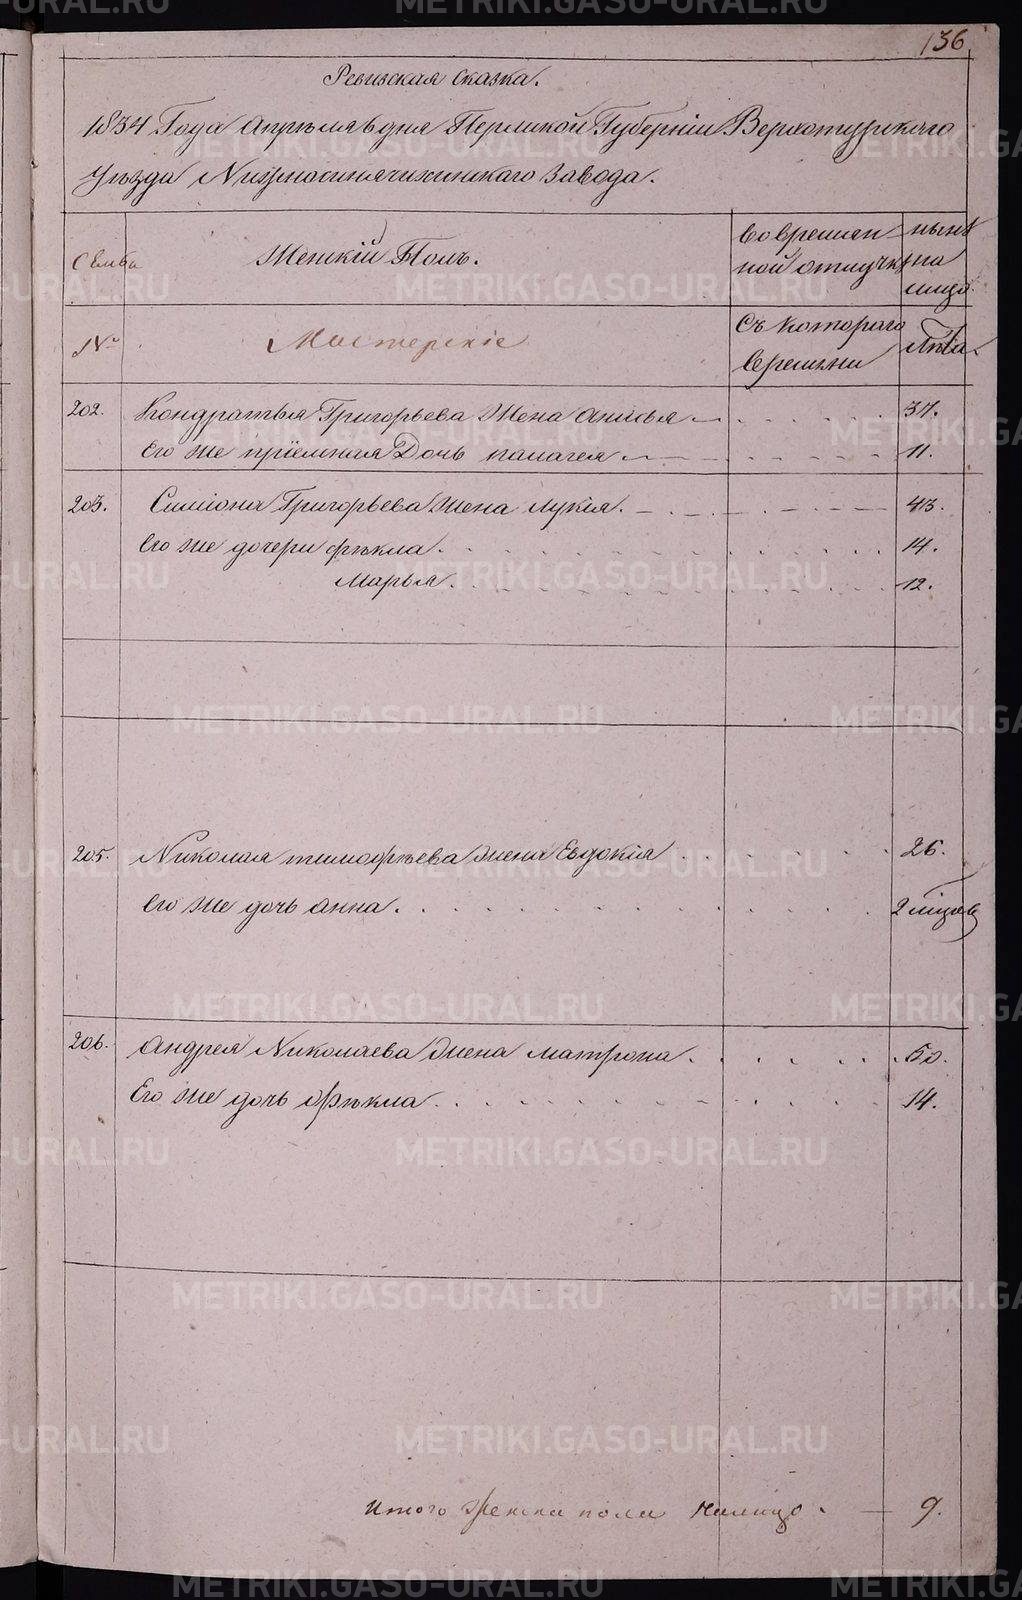 136
Ревизская сказка.
1834 Года апреля 8 дня Пермской Губернии Верхотурскаго
Уезда Нижнесинячихинскаго завода.
Семьи
Женский Полъ.
Во времен-
ной отлучке
ныне
на
лицо.
№
Мастерские
Съ котораго
времени
Лета.
202. Кондратья Григорьева Жена анисья 37.
Его же приемная Дочь палагея 11.
203. Симиона Григорьева жена лукия. 43.
Его же дочери фекла. 14.
Марья. 12.
205. Николая тимофеева жена Евдокия 26.
Его же дочь анна. 2 месяцов
206. Андрея Николаева жена матрона. 50.
Его же дочь фекла. 14.
Итого женска пола налицо. 9.
METRIKI.GASO-URAL.RU